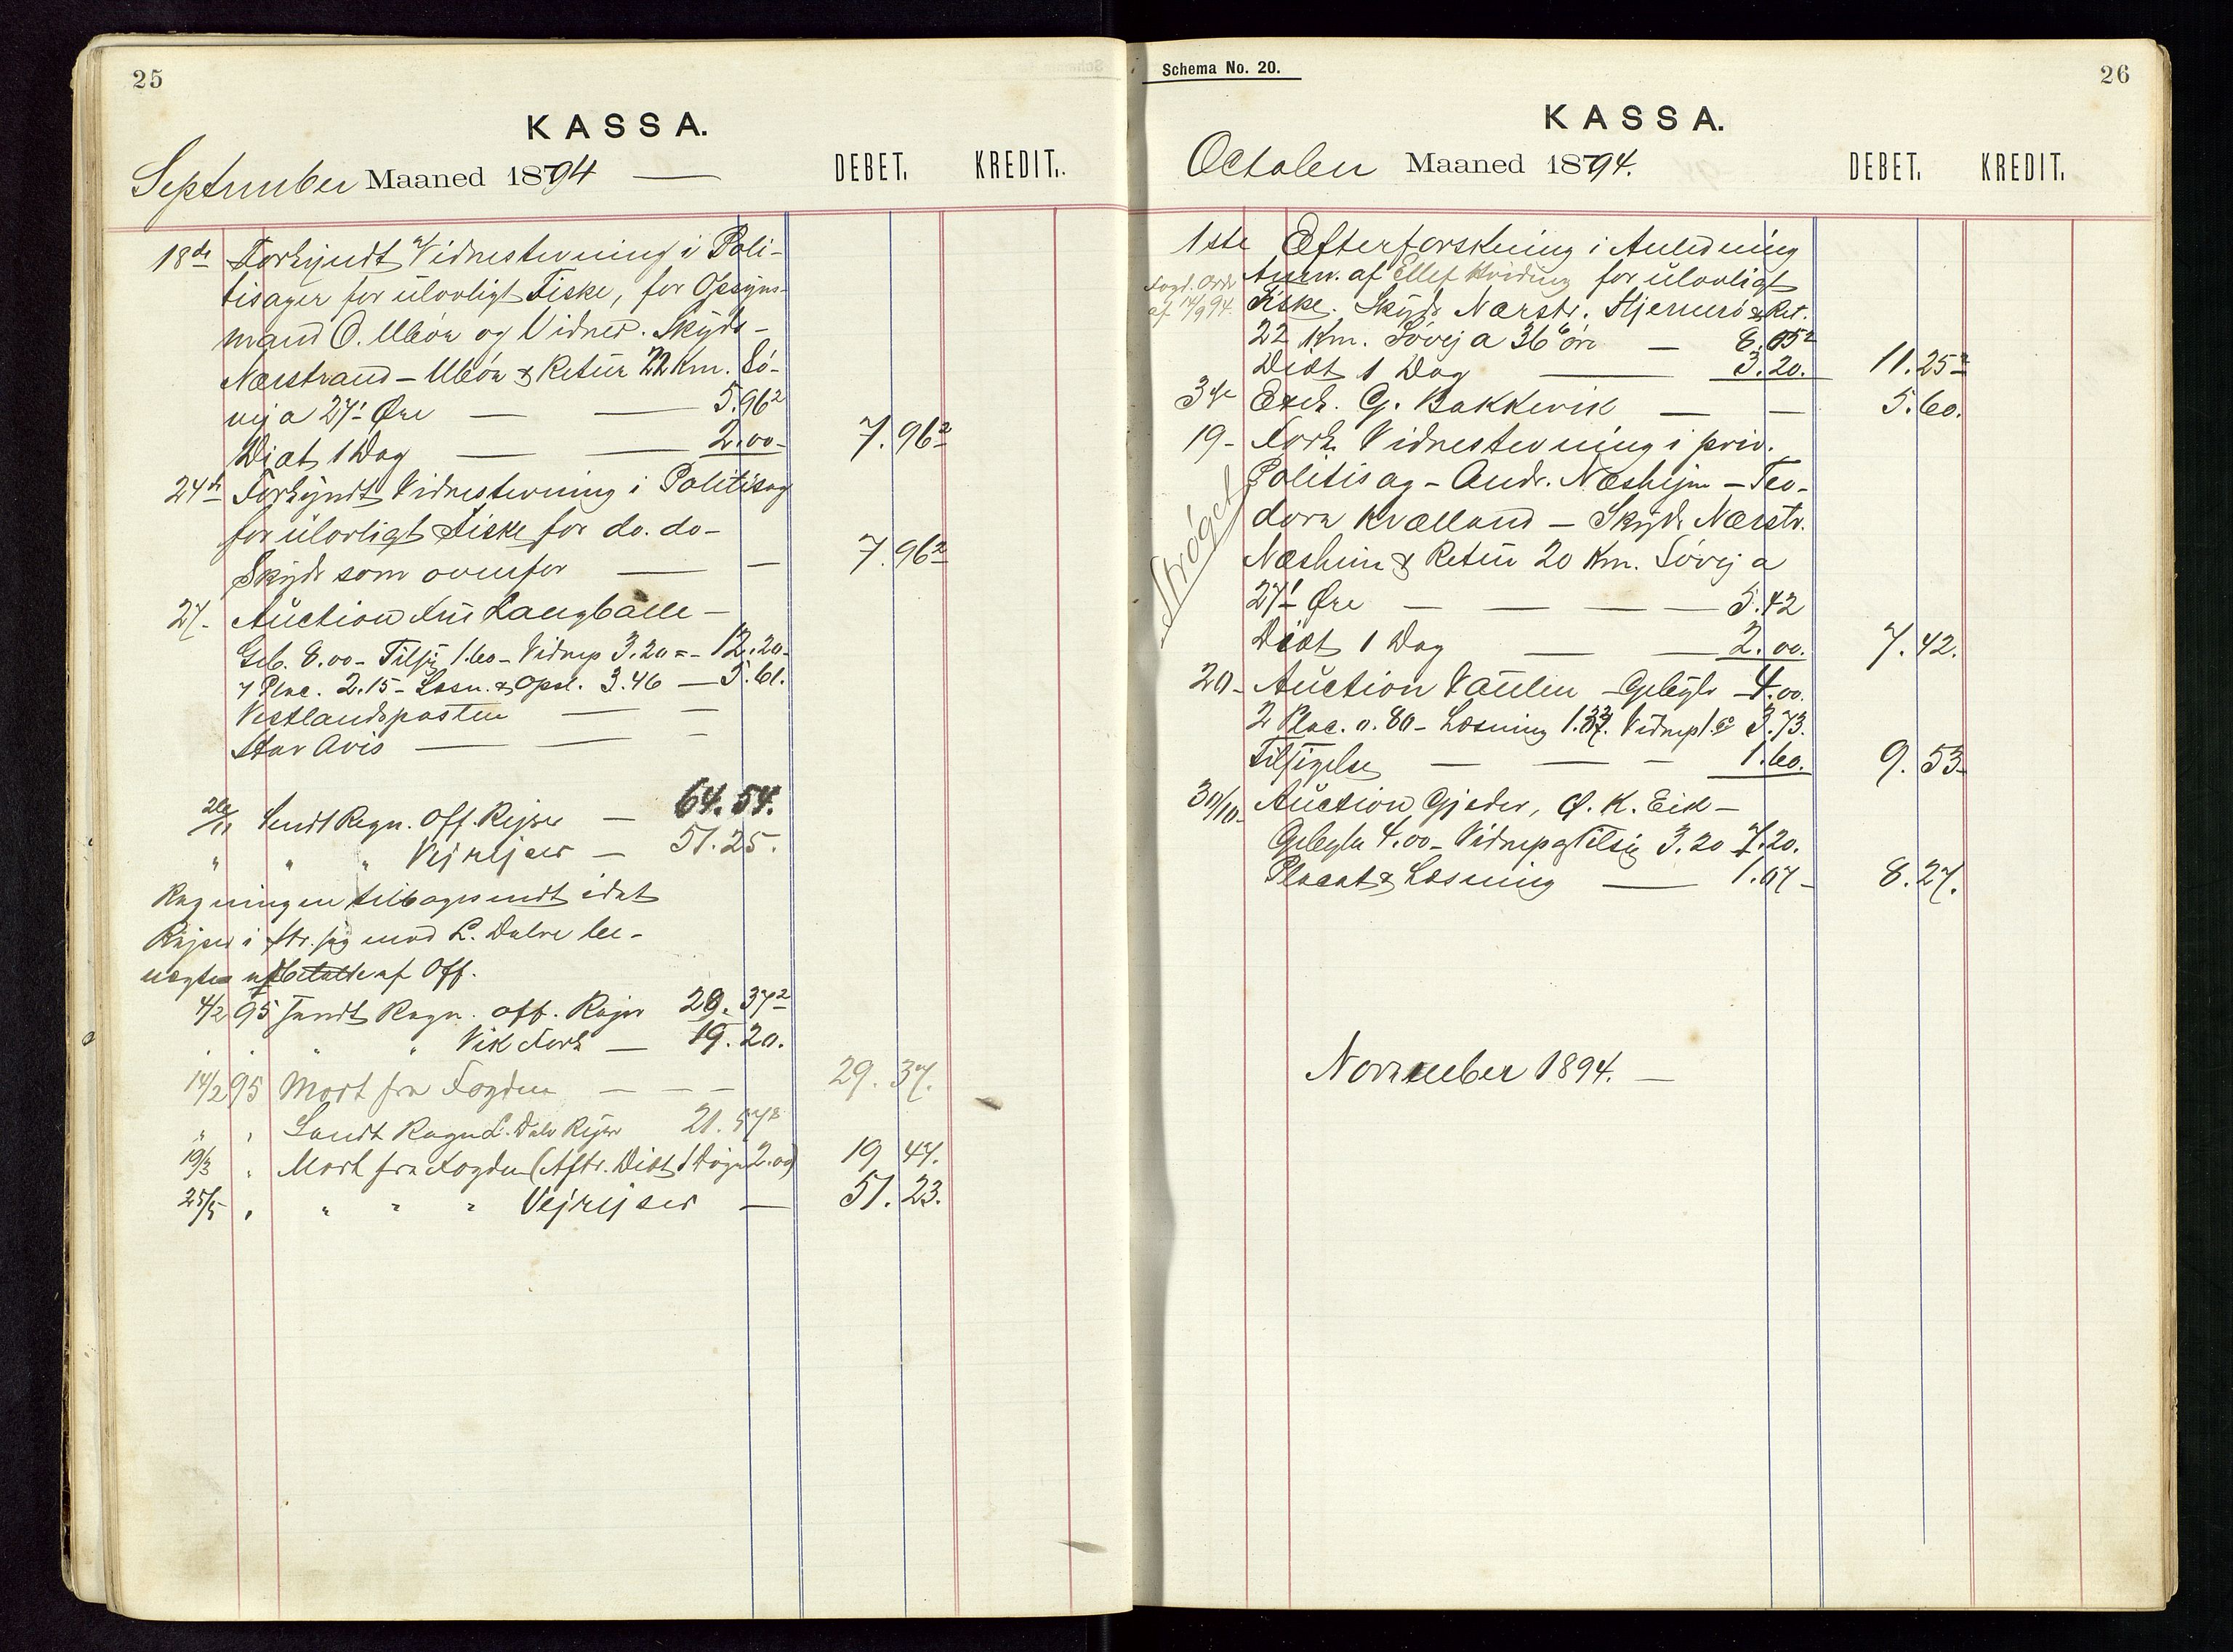 25
KASSA.
September Maaned 1894
DEBET. KREDIT.
18de Forkyndt Vidnestevning i Poli-
tisager for ulovligt Fiske, for Opsyns-
mand O. Ubøe og Vidner. Skyds-
Nærstrand - Ubøe & Retur 22 Km. Sø-
vej a 27¹ Øre — — 5.96²
Diæt 1 Dag — — 2.00- 7.96²
24de Forkyndt Vidnestevning i Politisag
for ulovligt Fiske for do. do-
Skyds som ovenfor — — 7.96²
27- Auction Fru Langballe -
Geb. 8.00- Tilsig 1.60- Vidnep 3.20 =- 12.20-
7 Plac. 2.15- Læsn. & Opsl. 3.46 — 5.61.
Vestlandsposten — —
Stav Avis — — -
26/11 Sendt Regn. Off. Rejser — 64.54.
" " " Vejrejser — 51.25.
Regningen tilbagesendt idet
Rejser i Str. sag mod L. Dalve be-
nægtes af Off.
4/2 95 Sendt Regn. off. Rejser 29.37²
" " " " Vik Fork — 19.20.
14/2 95 Modt fra Fogden — — — 29.37.
" " Sendt Regn L. Dalv Rejser 21.47²
19/3 " Modt fra Fogden (Aftr. Diæt 1 Døgn 2.00) 19 47.
25/5 " " " " Vejrejser — 51.23.
Schema No. 20.
26
KASSA.
October Maaned 1894.
DEBET. KREDIT.
1ste Efterforskning i Anledning
Fogd. Ordr Anm. af Ellef Hviding for ulovligt
af 14/9 94. Fiske. Skyds Nærstr. Hjermø & Ret.
22 Km. Søvej a 36⁶ øre — 8.05²
Diæt 1 Dag — 3.20. 11.25²
3die Exek. G. Bakkevik — — 5.60.
19- Fork. Vidnestevning i priv.
Politisag - Andr. Næshejm - Teo-
dora Kvælland - Skyds Nærstr.
Strøget
Næsheim & Retur 20 Km. Søvej a
27¹ Øre — — — — 5.42
Diæt 1 Dag — — 2.00. 7.42.
20- Auction Vaulen - Gebyhr - 4.00.
2 Plac. 0.80- Læsning 1.33. Vidnep 1.60 3.73.
Tilsigelse — — — 1.60. 9.53-
30/10- Auction Gjeder, O. K. Eik -
Gebyhr 4.00- Vidnep og Tilsig 3.20 7.20.
Placat & Læsning — 1.07- 8.27.
November 1894. —